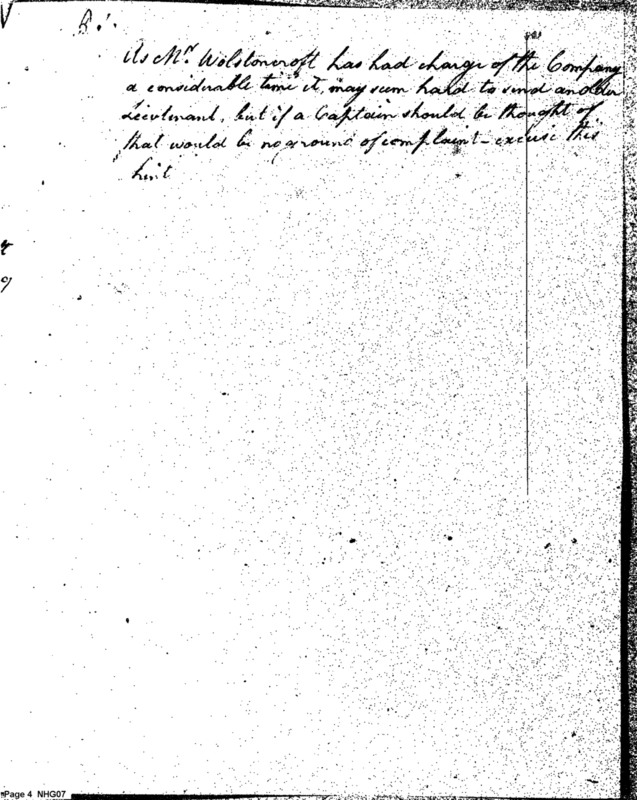 As Mr. Wolstoncroft has had charge of the Company
a considerable time it, may seem hard to send another
Lieutenant, but if a Captain should be thought of
that would be no ground of complaint - excuse this
hint
Page 4 NHG07